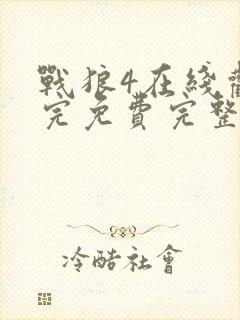 戰狼4在綫
完免費完整
冷酷社會